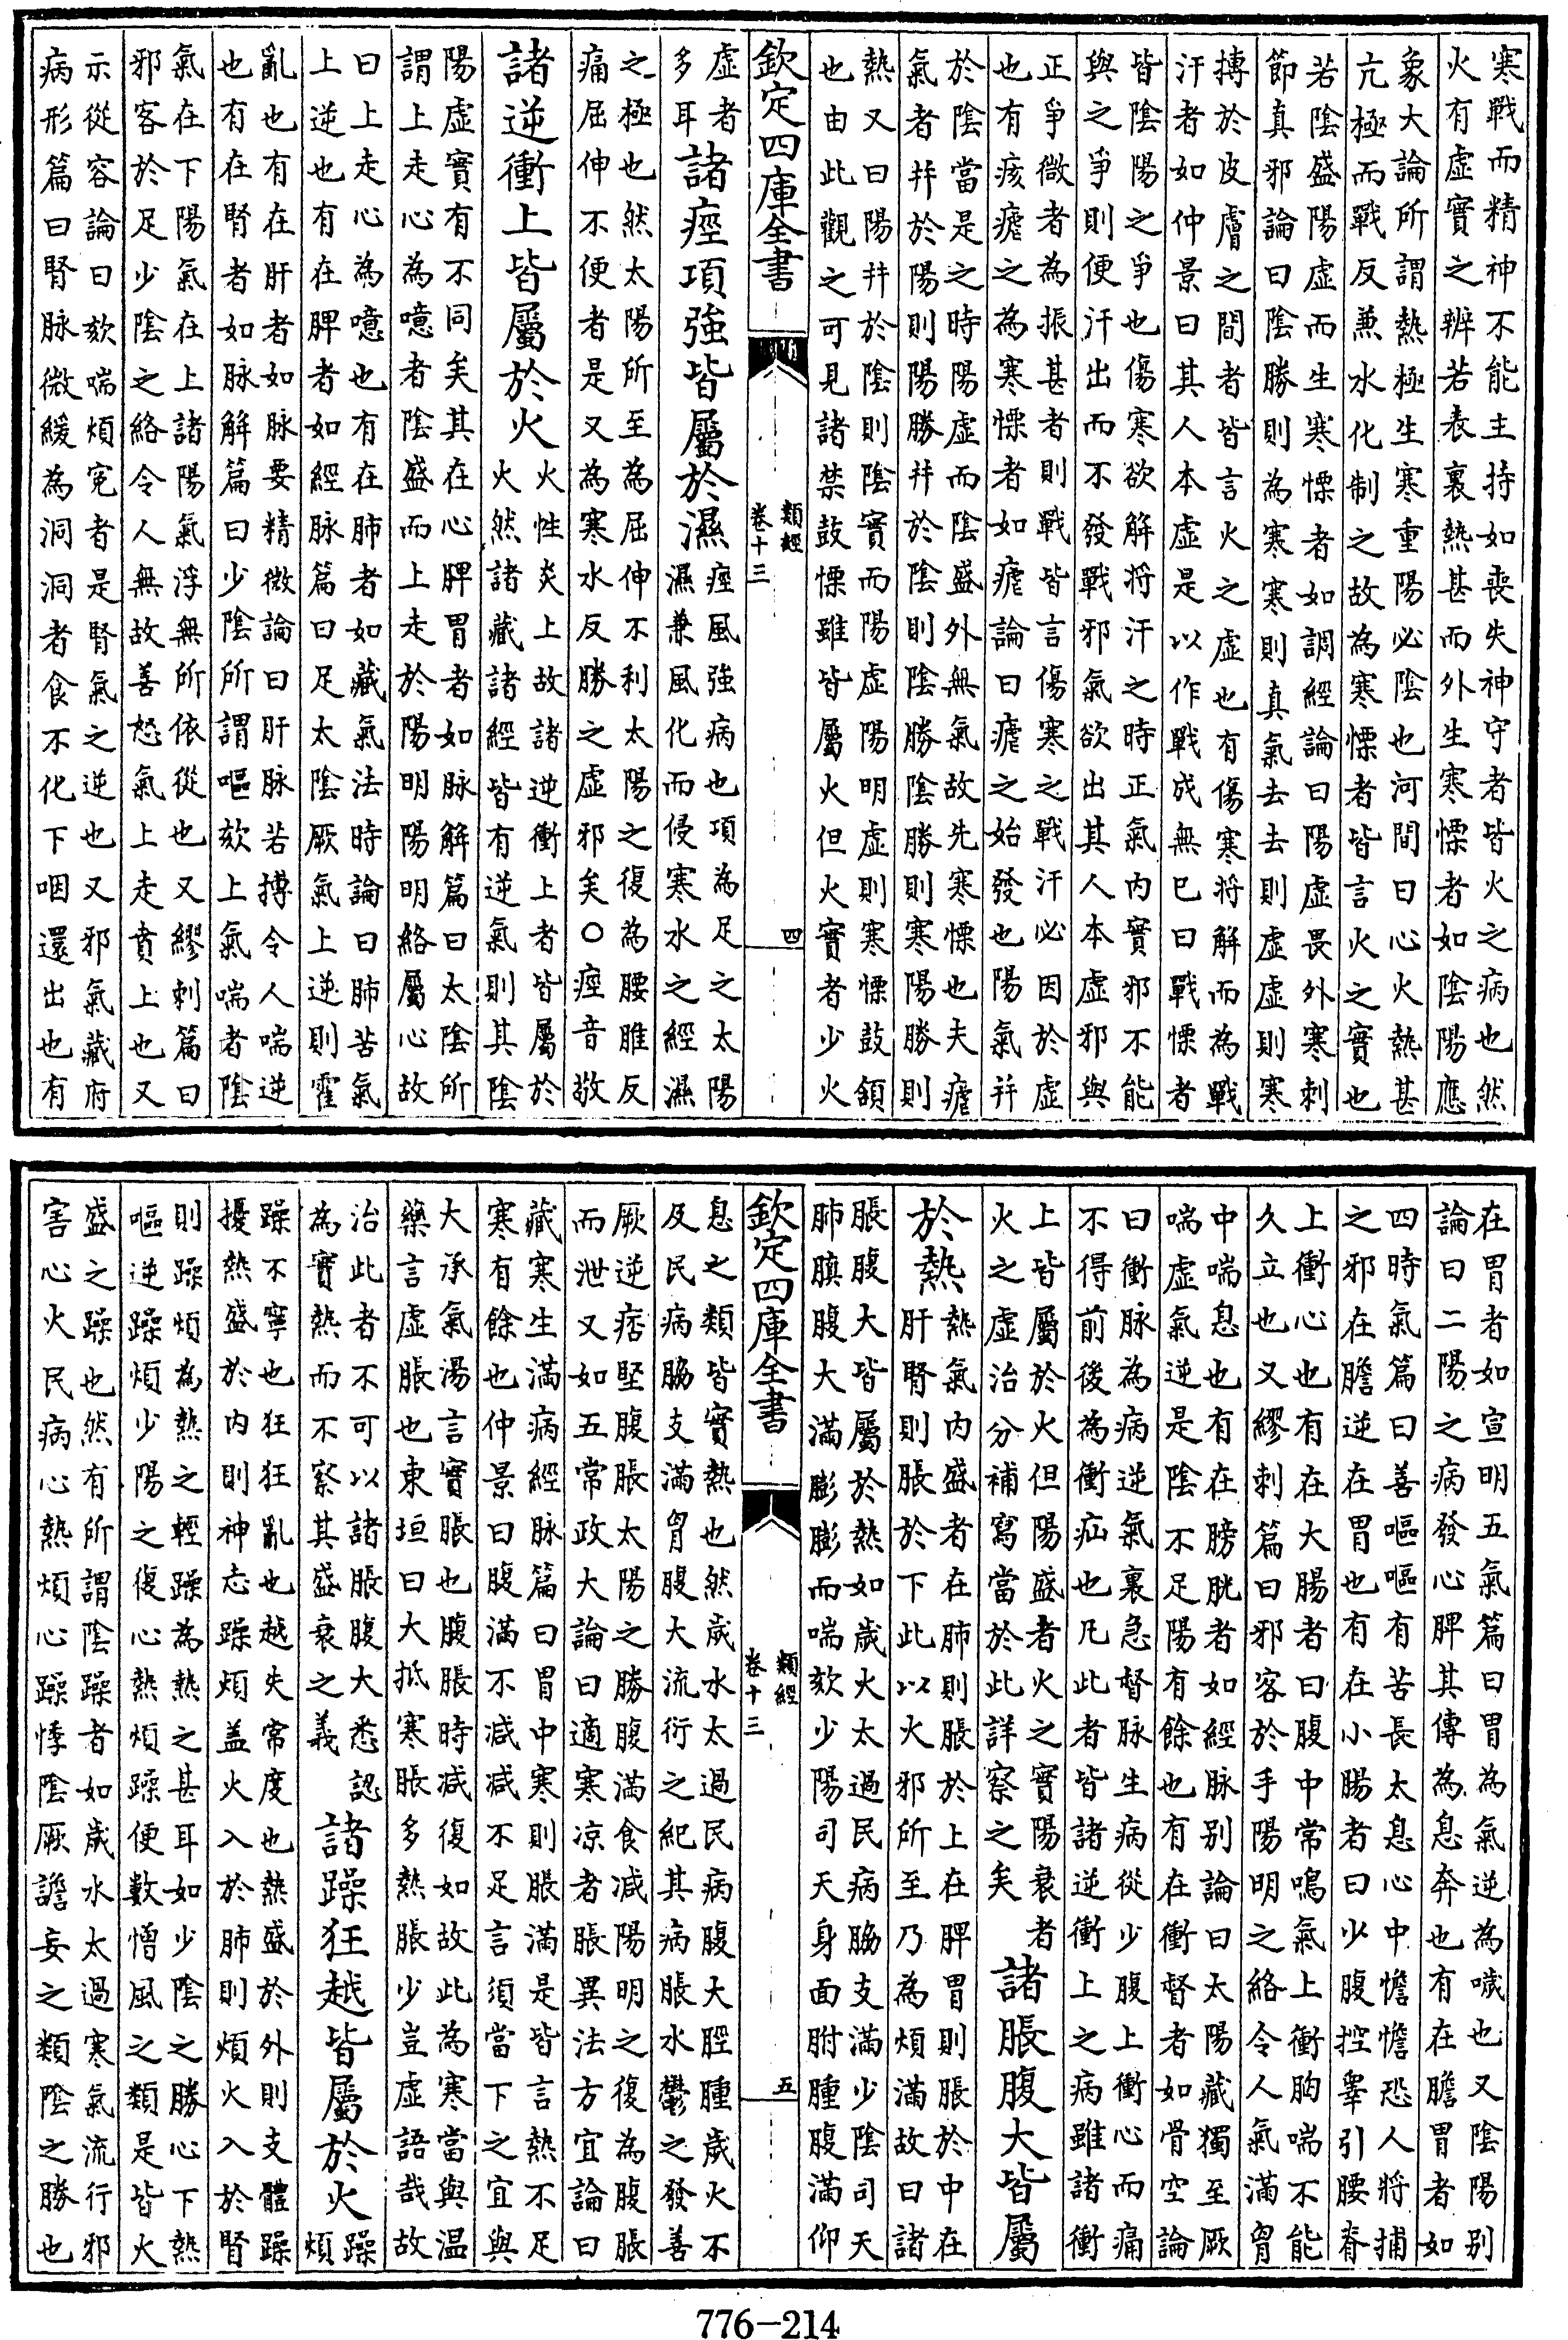 寒戰而精神不能主持如喪失神守者皆火之病也然
火有虛實之辨若表裏熱甚而外生寒慄者如陰陽應
象大論所謂熱極生寒重陽必陰也河間曰心火熱甚
亢極而戰反兼水化制之故為寒慄者皆言火之實也
若陰盛陽虛而生寒慄者如調經論曰陽虛畏外寒刺
節真邪論曰陰勝則為寒寒則真氣去去則虛虛則寒
搏於皮膚之間者皆言火之虛也有傷寒将解而為戰
汗者如仲景曰其人本虛是以作戰成無已曰戰慄者
皆陰陽之爭也傷寒欲解将汗之時正氣内實邪不能
與之爭則便汗出而不發戰邪氣欲出其人本虛邪與
正爭微者為振甚者則戰皆言傷寒之戰汗必因於虛
也有痎瘧之為寒慄者如瘧論曰瘧之始發也陽氣幷
於陰當是之時陽虛而陰盛外無氣故先寒慄也夫瘧
氣者幷於陽則陽勝幷於陰則陰勝陰勝則寒陽勝則
熱又曰陽幷於陰則陰實而陽虛陽明虛則寒慄鼓頷
也由此觀之可見諸禁鼓慄雖皆屬火但火實者少火
欽定四庫全書
類經
卷十三
四
虛者
多耳
諸痙項強皆屬於濕
痙風強病也項為足之太陽
濕兼風化而侵寒水之經濕
之極也然太陽所至為屈伸不利太陽之復為腰脽反
痛屈伸不便者是又為寒水反勝之虛邪矣○痙音敬
諸逆衝上皆屬於火
火性炎上故諸逆衝上者皆屬於
火然諸藏諸經皆有逆氣則其陰
陽虛實有不同矣其在心脾胃者如脉解篇曰太陰所
謂上走心為噫者陰盛而上走於陽明陽明絡屬心故
曰上走心為噫也有在肺者如藏氣法時論曰肺苦氣
上逆也有在脾者如經脉篇曰足太陰厥氣上逆則霍
亂也有在肝者如脉要精微論曰肝脉若搏令人喘逆
也有在腎者如脉解篇曰少陰所謂嘔欬上氣喘者陰
氣在下陽氣在上諸陽氣浮無所依從也又繆刺篇曰
邪客於足少陰之絡令人無故善怒氣上走賁上也又
示從容論曰欬喘煩寃者是腎氣之逆也又邪氣藏府
病形篇曰腎脉微緩為洞洞者食不化下咽還出也有
在胃者如宣明五氣篇曰胃為氣逆為噦也又陰陽别
論曰二陽之病發心脾其傳為息奔也有在膽胃者如
四時氣篇曰善嘔嘔有苦長太息心中憺憺恐人將捕
之邪在膽逆在胃也有在小腸者曰少腹控睾引腰脊
上衝心也有在大腸者曰腹中常鳴氣上衝胸喘不能
久立也又繆刺篇曰邪客於手陽明之絡令人氣滿胷
中喘息也有在膀胱者如經脉别論曰太陽藏獨至厥
喘虛氣逆是陰不足陽有餘也有在衝督者如骨空論
曰衝脉為病逆氣裏急督脉生病從少腹上衝心而痛
不得前後為衝疝也凡此者皆諸逆衝上之病雖諸衝
上皆屬於火但陽盛者火之實陽衰
者
火之虛治分補寫當於此詳察之矣
諸脹腹大皆屬
於熱
熱氣内盛者在肺則脹於上在脾胃則脹於中在
肝腎則脹於下此以火邪所至乃為煩滿故曰諸
脹腹大皆屬於熱如歲火太過民病脇支滿少陰司天
肺䐜腹大滿膨膨而喘欬少陽司天身面胕腫腹滿仰
欽定四庫全書
類經
卷十三
五
息之類皆實熱也然歲水太過民病腹大脛腫歲火不
及民病脇支滿胷腹大流衍之紀其病脹水鬱之發善
厥逆痞堅腹脹太陽之勝腹滿食減陽明之復為腹脹
而泄又如五常政大論曰適寒凉者脹異法方宜論曰
藏寒生滿病經脉篇曰胃中寒則脹滿是皆言熱不足
寒有餘也仲景曰腹滿不減減不足言須當下之宜與
大承氣湯言實脹也腹脹時減復如故此為寒當與温
藥言虛脹也東垣曰大抵寒脹多熱脹少豈虛語哉故
治此者不可以諸脹腹大悉認
為實熱而不察其盛衰之義
諸躁狂越皆屬於火
躁
煩
躁不寧也狂狂亂也越失常度也熱盛於外則支體躁
擾熱盛於内則神志躁煩盖火入於肺則煩火入於腎
則躁煩為熱之輕躁為熱之甚耳如少陰之勝心下熱
嘔逆躁煩少陽之復心熱煩躁便數憎風之類是皆火
盛之躁也然有所謂陰躁者如歲水太過寒氣流行邪
害心火民病心熱煩心躁悸陰厥譫妄之類陰之勝也
776-214